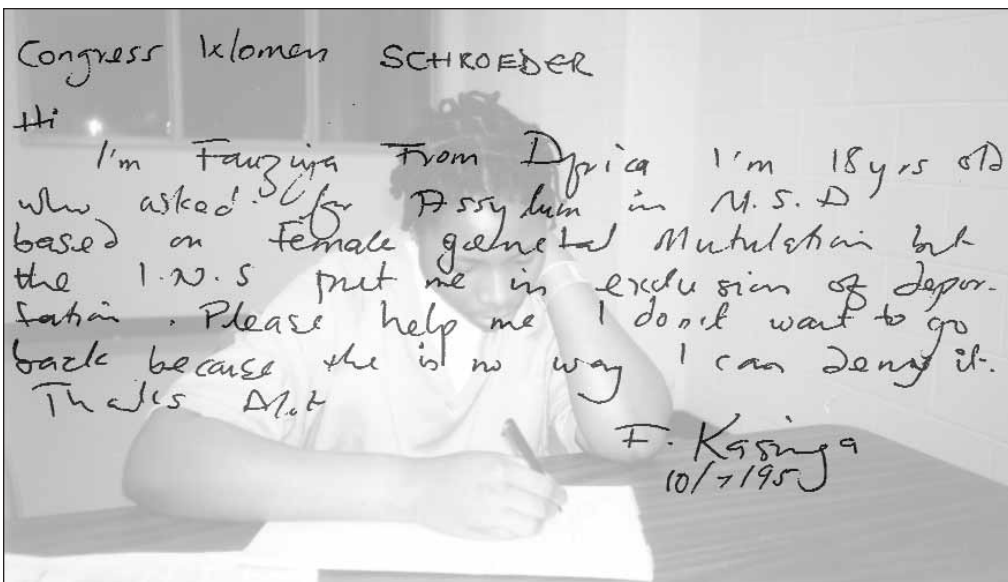 Congress Women SCHROEDER
Hi
I'm Fauziya From Africa I'm 18yrs old
who asked for Assylum in U.S.A
based on Female genetal Mutulation but
the I.N.S put me in exclusion of depor-
tation. Please help me I don't want to go
back because the is no way I can deny it.
Thanks Alot
F. Kasinga
10/7/95